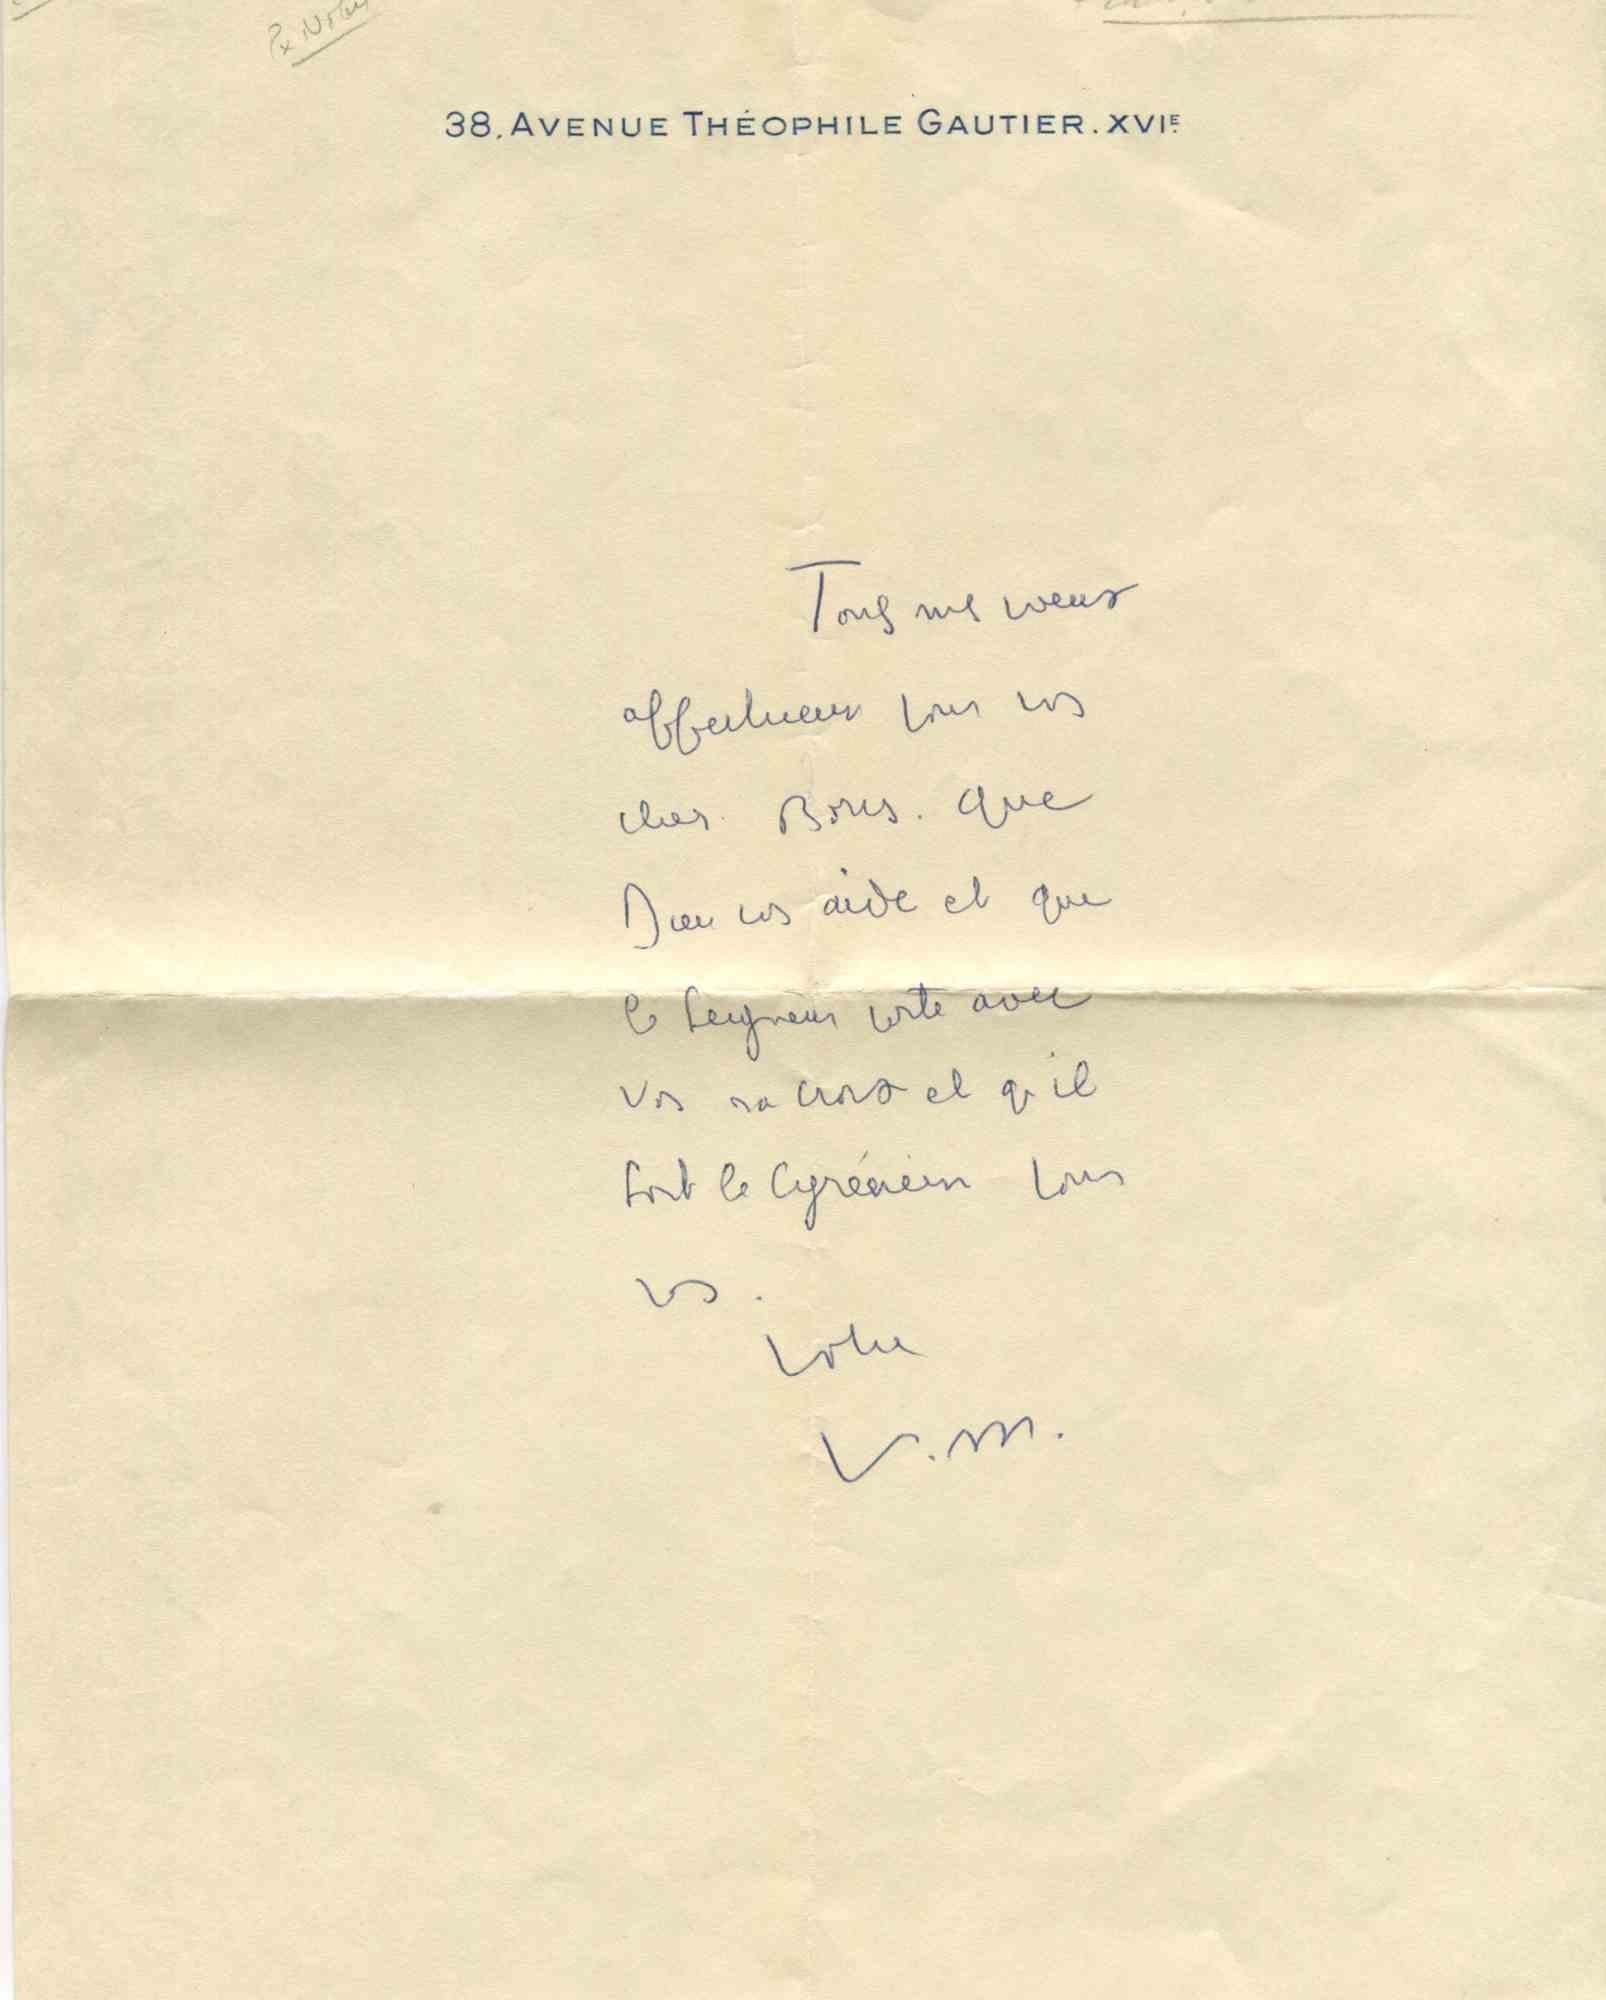 38, AVENUE THÉOPHILE GAUTIER. XVIE.
Tous mes voeux
affectueux pour vos
cher Boris. que
Dieu vos aide et que
le Seigneur porte avec
vos sa croix et qu'il
soit le Cyrénéen pour
vos.
Votre
V. M.